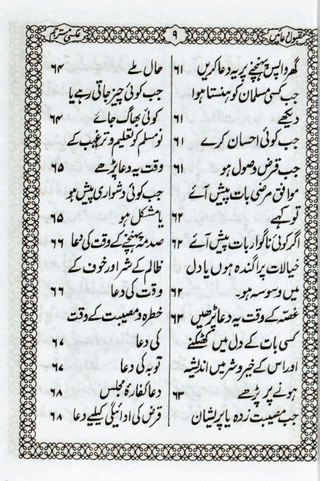 مقبول دعائیں
۹
عکسی مترجم
گھر واپس پہنچنے پر یہ دعا کریں ۶۱
جب کسی مسلمان کو ہنستا ہوا
دیکھے ۶۱
جب کوئی احسان کرے ۶۱
جب قرض وصول ہو ۶۱
موافق مرضی بات پیش آئے
تو کہے ۶۲
اگر کوئی ناگوار بات پیش آئے ۶۲
خیالات پراگندہ ہوں یا دل
میں وسوسہ ہو۔ ۶۲
غصہ کے وقت یہ دعا پڑھیں ۶۳
کسی بات کے دل میں کھٹکنے
اور اس کے خیر و شر میں اندیشہ
ہونے پر پڑھے ۶۳
جب مصیبت زدہ یا پریشان
حال ملے ۶۴
جب کوئی چیز جاتی رہے یا
کوئی بھاگ جائے ۶۴
نو مسلم کو تعلیم و ترغیب کے
وقت یہ دعا پڑھے ۶۵
جب کوئی دشواری پیش ہو
یا مشکل ہو ۶۵
صدمہ پہنچنے کے وقت کی دعا ۶۶
ظالم کے شر اور خوف کے
وقت کی دعا ۶۶
خطرہ و مصیبت کے وقت
کی دعا ۶۷
توبہ کی دعا ۶۷
دعا کفارۂ مجلس ۶۸
قرض کی ادائیگی کیلئے دعا ۶۸